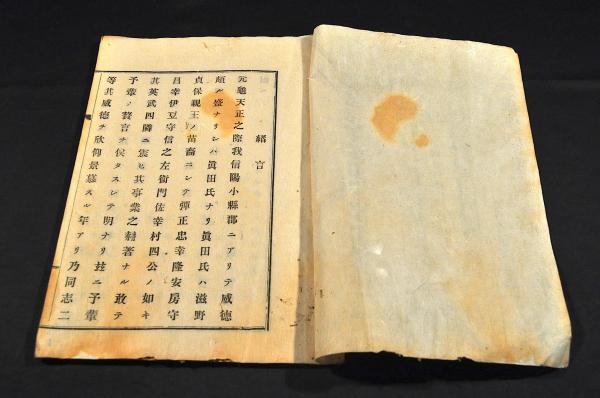 緒言
元龜天正之際我信陽小縣郡ニアリテ威德
頗ル盛ナリシハ眞田氏ナリ眞田氏ハ滋野
貞保親王ノ苗裔ニシテ彈正忠幸隆安房守
昌幸伊豆守信之左衞門佐幸村四公ノ如キ
其英武四隣ニ震ヒ其事業之赫著ナル敢テ
予輩ノ贅言ヲ俟タスシテ明ナリ玆ニ予輩
等其威德ヲ欣仰景慕スル年アリ乃同志二